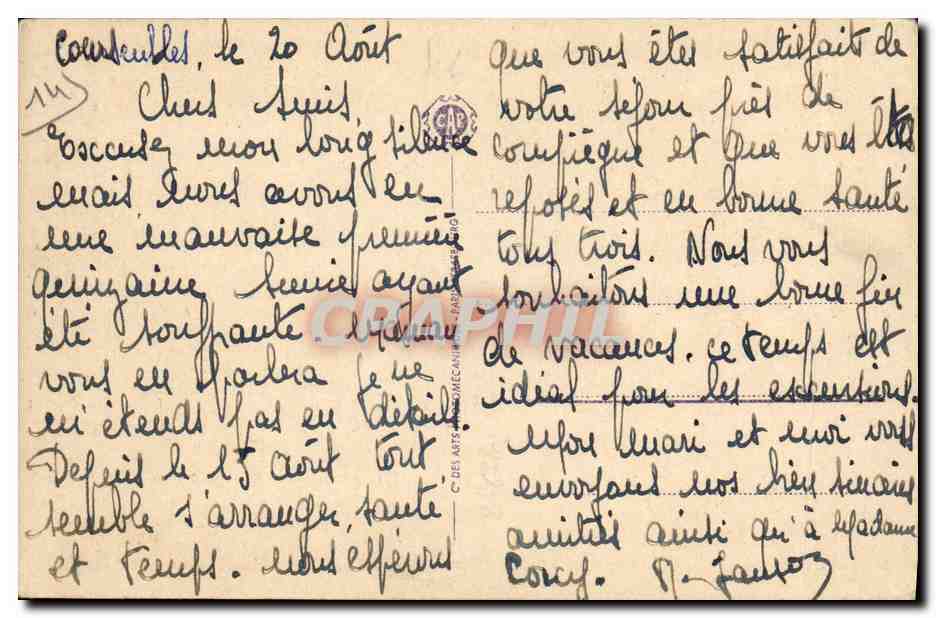 Courseulles, le 20 Août
14
Chers Amis,
Excusez mon long silence
mais nous avons eu
une mauvaise première
quinzaine ayant
été souffrante. Maman
vous en parlera je ne
m'étends pas en détails
Depuis le 15 Août tout
semble s'arranger, santé
et temps. nous espérons
CAP
Cie DES ARTS PHOTOMÉCANIQUES - PARIS-STRASBOURG
CPAPHIL
que vous êtes satisfaits de
votre séjour près de
Compiègne et que vous êtes
reposés et en bonne santé
tous trois. Nous vous
souhaitons une bonne fin
de vacances. ce temps est
idéal pour les excursions.
Mon mari et moi vous
envoyons nos bien sincères
amitiés ainsi qu'à Madame